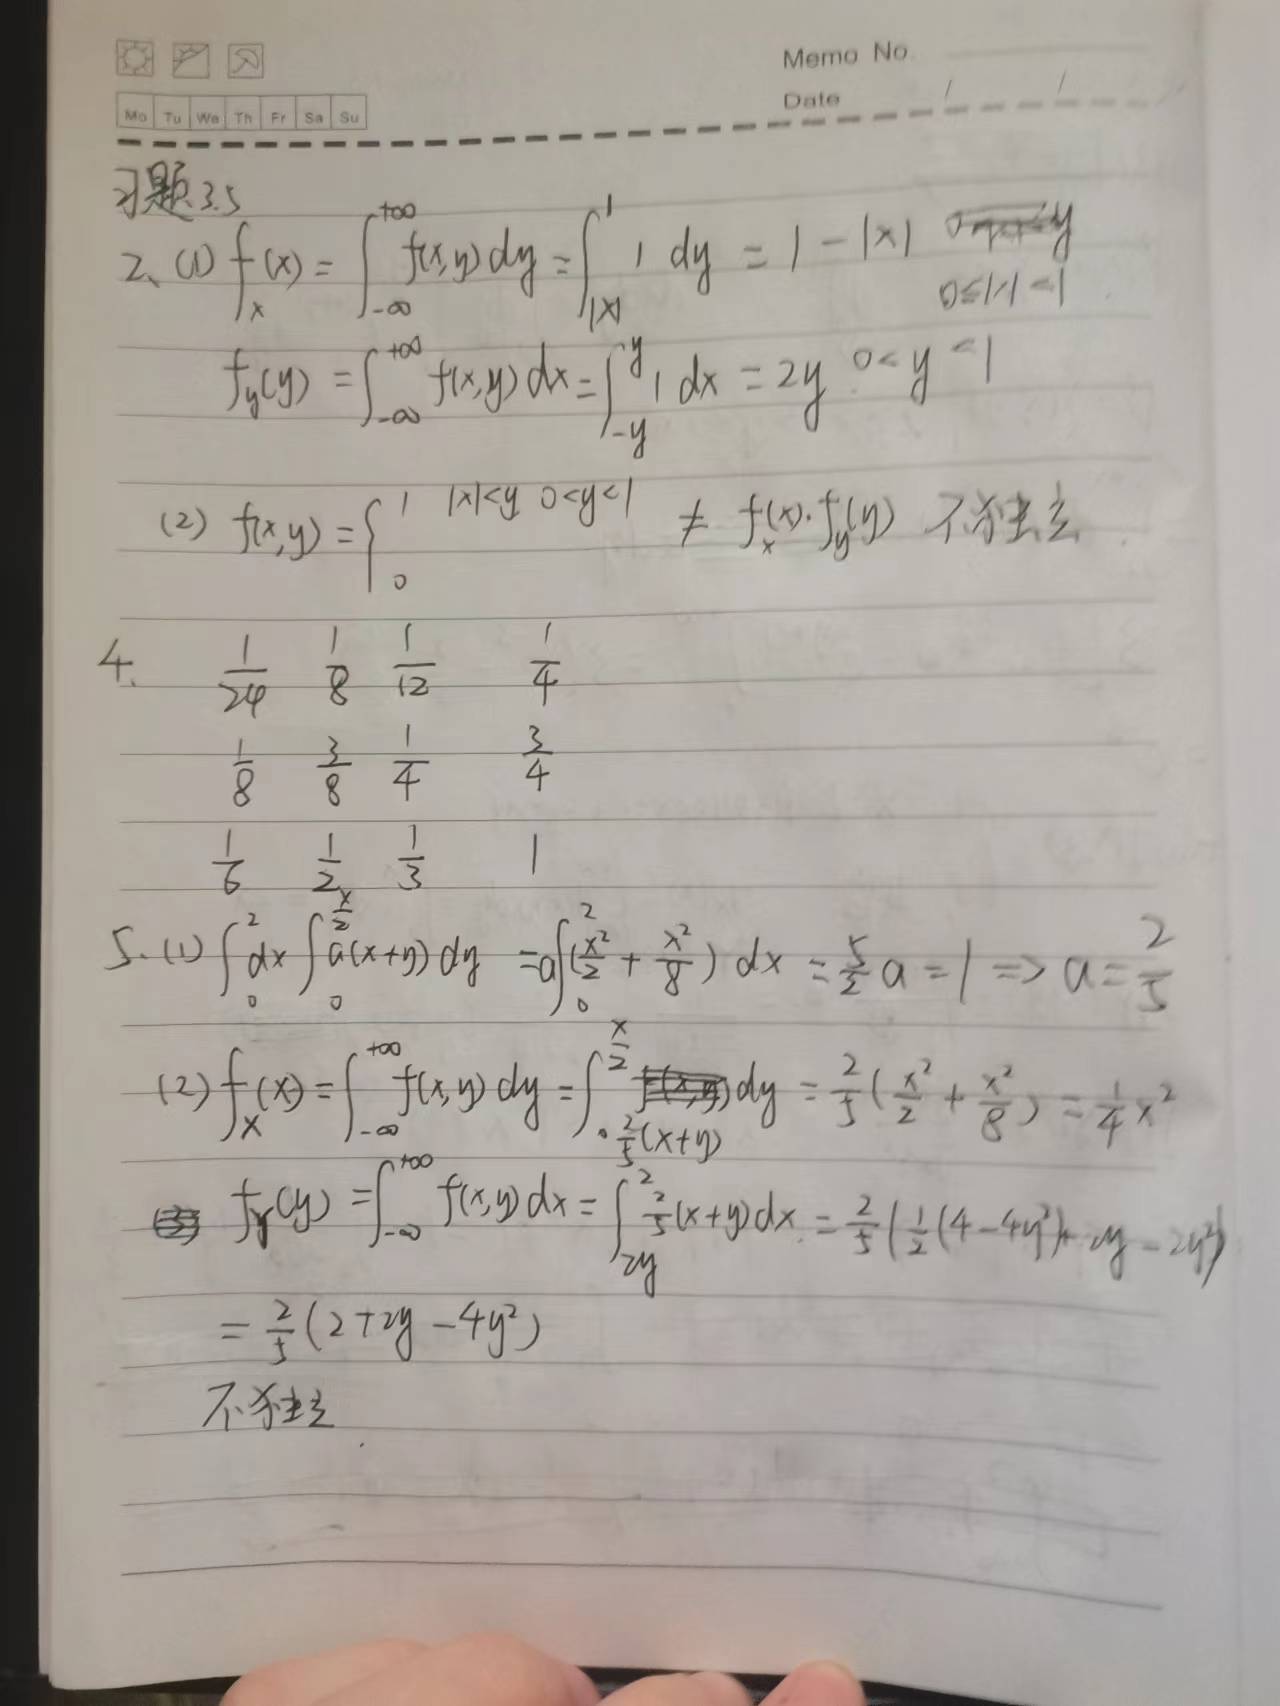 Memo No.
Date / /
Mo Tu We Th Fr Sa Su
习题3.5
2、(1) f_X(x) = ∫_{-∞}^{+∞} f(x,y) dy = ∫_{|x|}^{1} 1 dy = 1 - |x|
0≤|x|<1
f_y(y) = ∫_{-∞}^{+∞} f(x,y) dx = ∫_{-y}^{y} 1 dx = 2y 0<y<1
(2) f(x,y) = { 1 |x|<y 0<y<1 ≠ f_x(x)·f_y(y) 不独立
0
4. 1/24 1/8 1/12 1/4
1/8 3/8 1/4 3/4
1/6 1/2 1/3 1
5. (1) ∫_0^2 dx ∫_0^{x/2} a(x+y) dy = a∫_0^2 (x²/2 + x²/8) dx = 5/3 a = 1 => a = 2/5
(2) f_X(x) = ∫_{-∞}^{+∞} f(x,y) dy = ∫_0^{x/2} 2/5(x+y) dy = 2/5(x²/2 + x²/8) = 1/4 x²
f_Y(y) = ∫_{-∞}^{+∞} f(x,y) dx = ∫_{2y}^{2} 2/5(x+y) dx = 2/5(1/2(4-4y²)+2y-2y²)
= 2/5(2+2y-4y²)
不独立